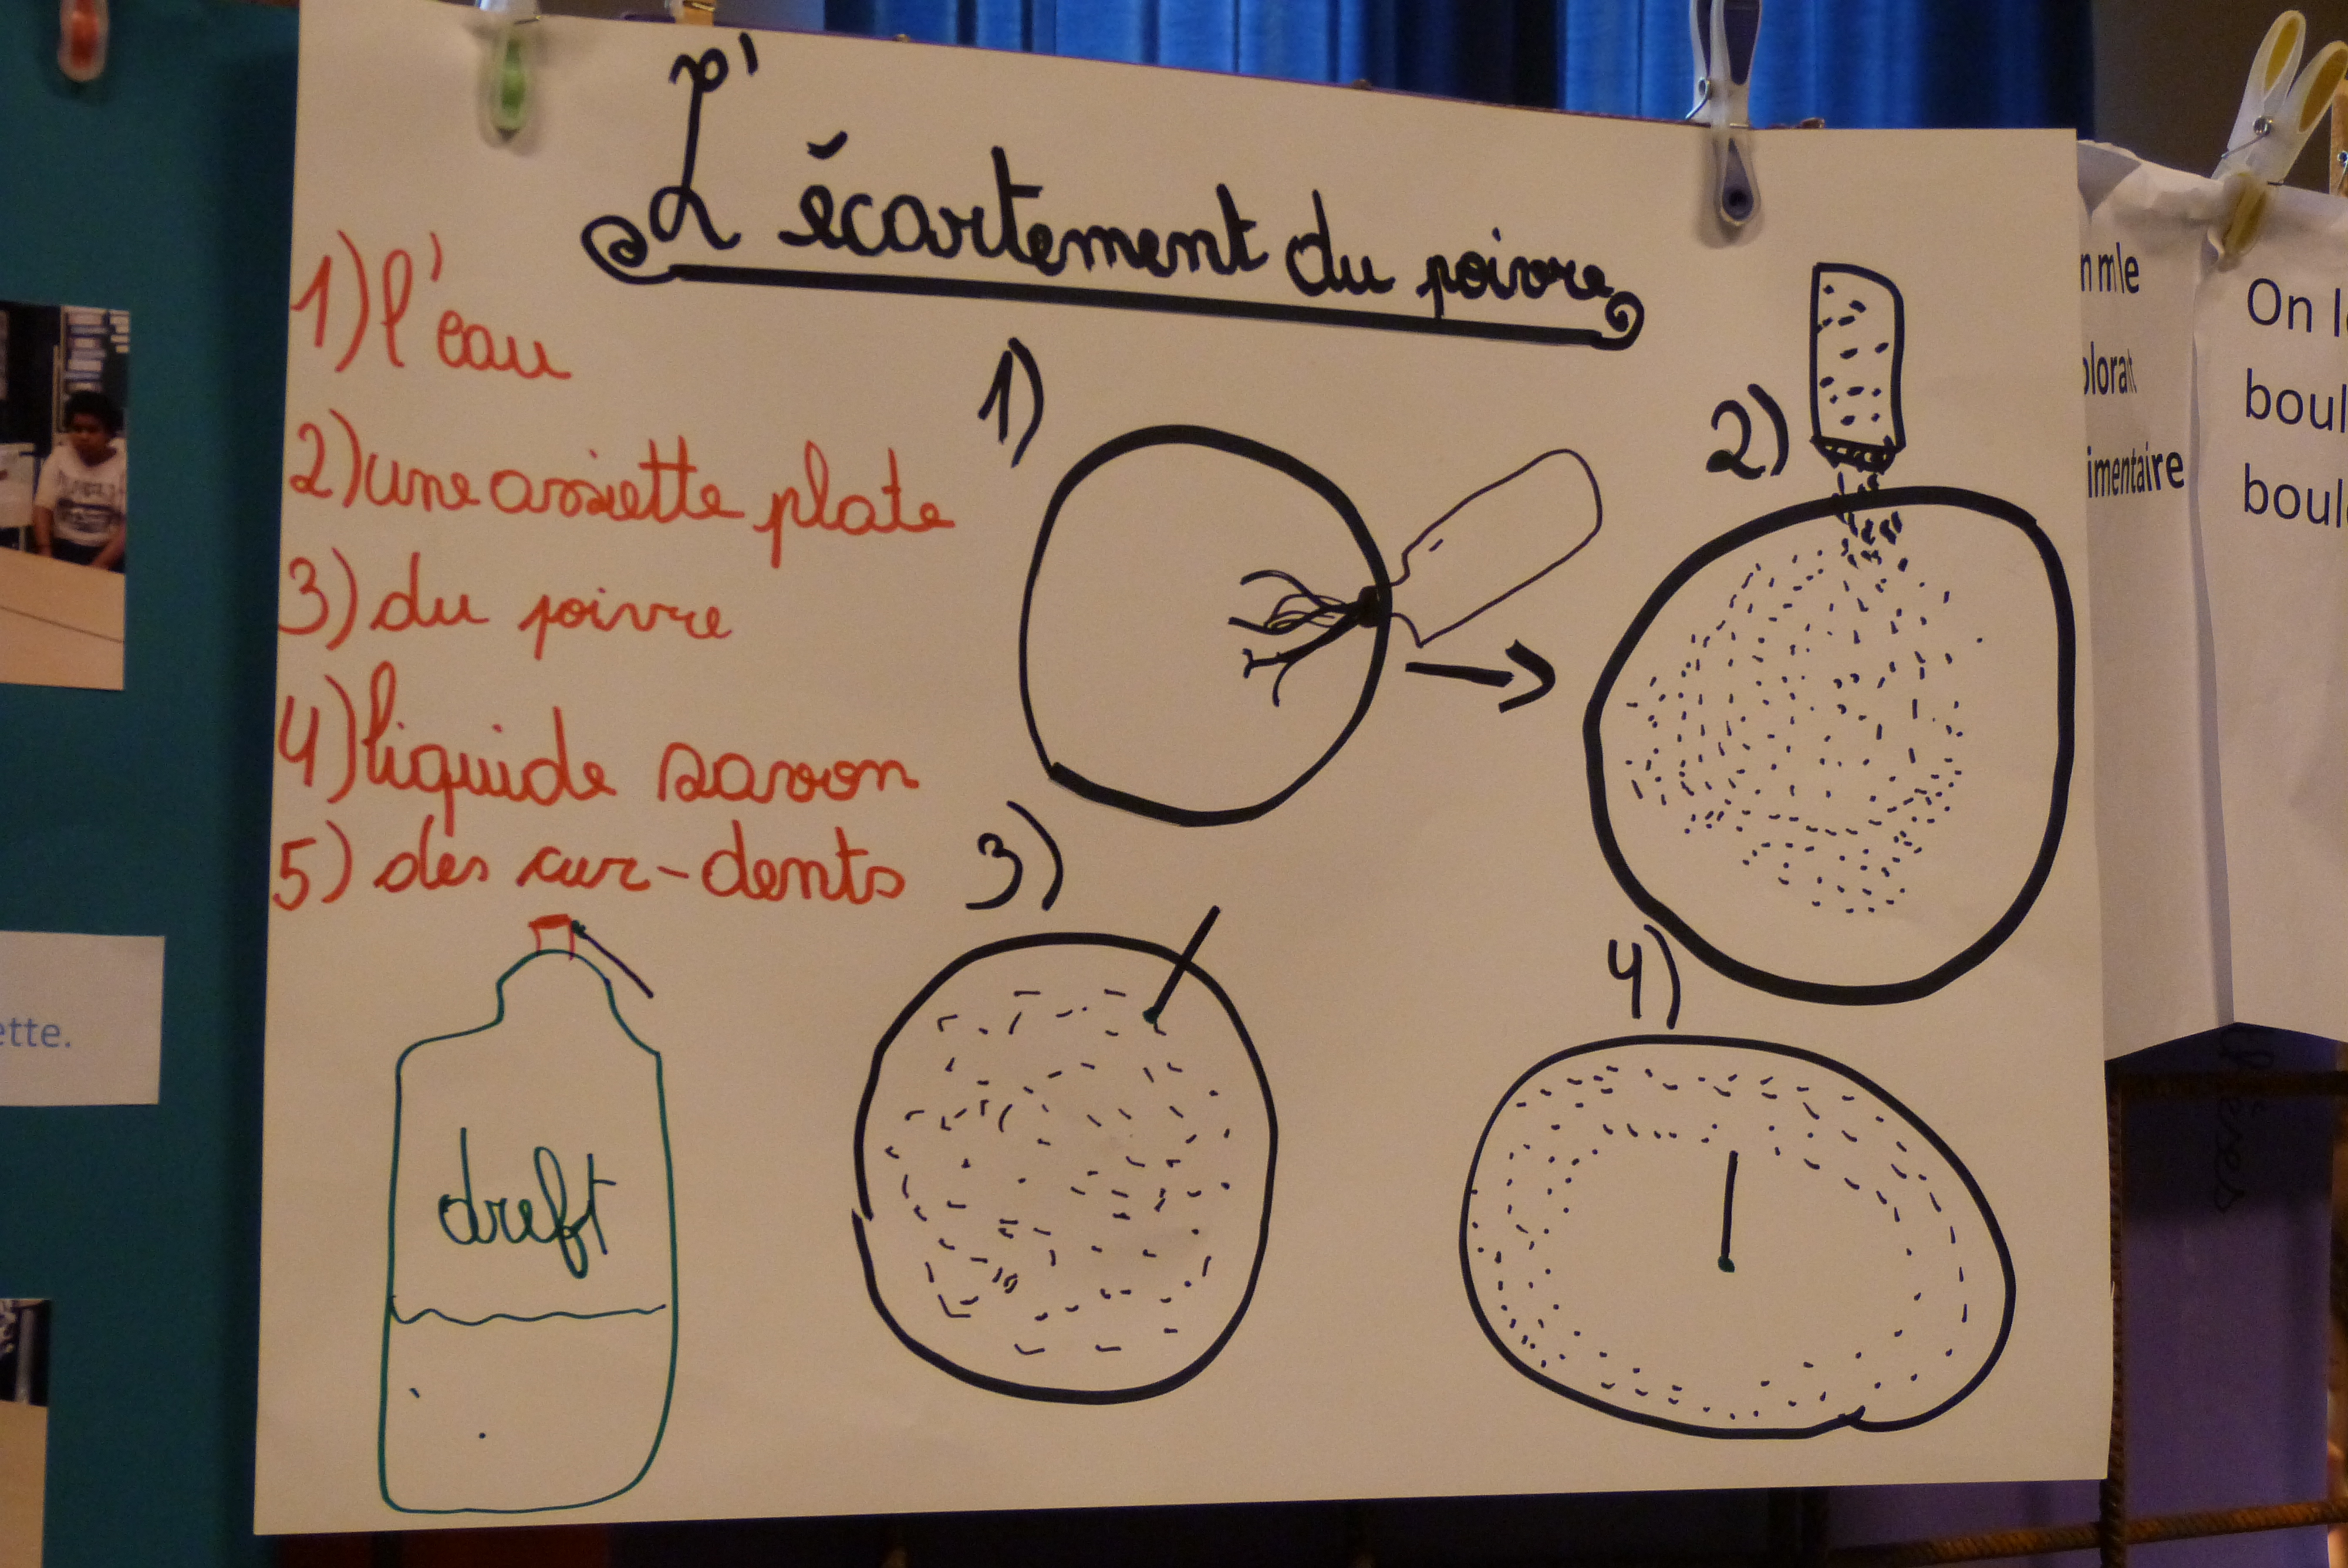 L'écartement du poivre
1) l'eau
2) une assiette plate
3) du poivre
4) liquide savon
5) des cur-dents
dreft
1)
2)
3)
4)
ette.
n mle
olorat
imentaire
On l
boul
boul